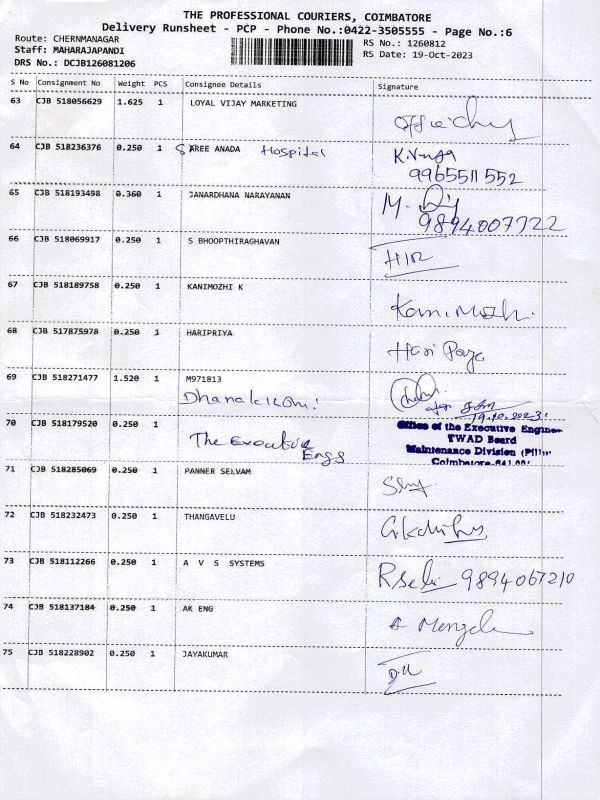 THE PROFESSIONAL COURIERS, COIMBATORE
Delivery Runsheet - PCP - Phone No.:0422-3505555 - Page No.:6
Route: CHERNMANAGAR RS No.: 1260812
Staff: MAHARAJAPANDI RS Date: 19-Oct-2023
DRS No.: DCJB126081206
S No Consignment No Weight PCS Consignee Details Signature
63 CJB 518056629 1.625 1 LOYAL VIJAY MARKETING
64 CJB 518236376 0.250 1 SREE ANADA Hospital
9965511552
65 CJB 518193498 0.360 1 JANARDHANA NARAYANAN M.
9894007722
66 CJB 518069917 0.250 1 S BHOOPTHIRAGHAVAN
67 CJB 518189758 0.250 1 KANIMOZHI K
68 CJB 517875978 0.250 1 HARIPRIYA
Hari
69 CJB 518271477 1.520 1 M971813
19.10.2023
70 CJB 518179520 0.250 1 Office of the Executive Engineer
The Executive TWAD Board
Engg Maintenance Division
Coimbatore-641
71 CJB 518285069 0.250 1 PANNER SELVAM
72 CJB 518232473 0.250 1 THANGAVELU
73 CJB 518112266 0.250 1 A V S SYSTEMS
9894067210
74 CJB 518137184 0.250 1 AK ENG
75 CJB 518228902 0.250 1 JAYAKUMAR